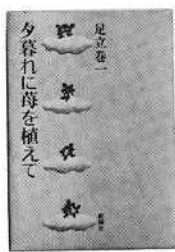 足立巻一
夕暮れに苺を植えて